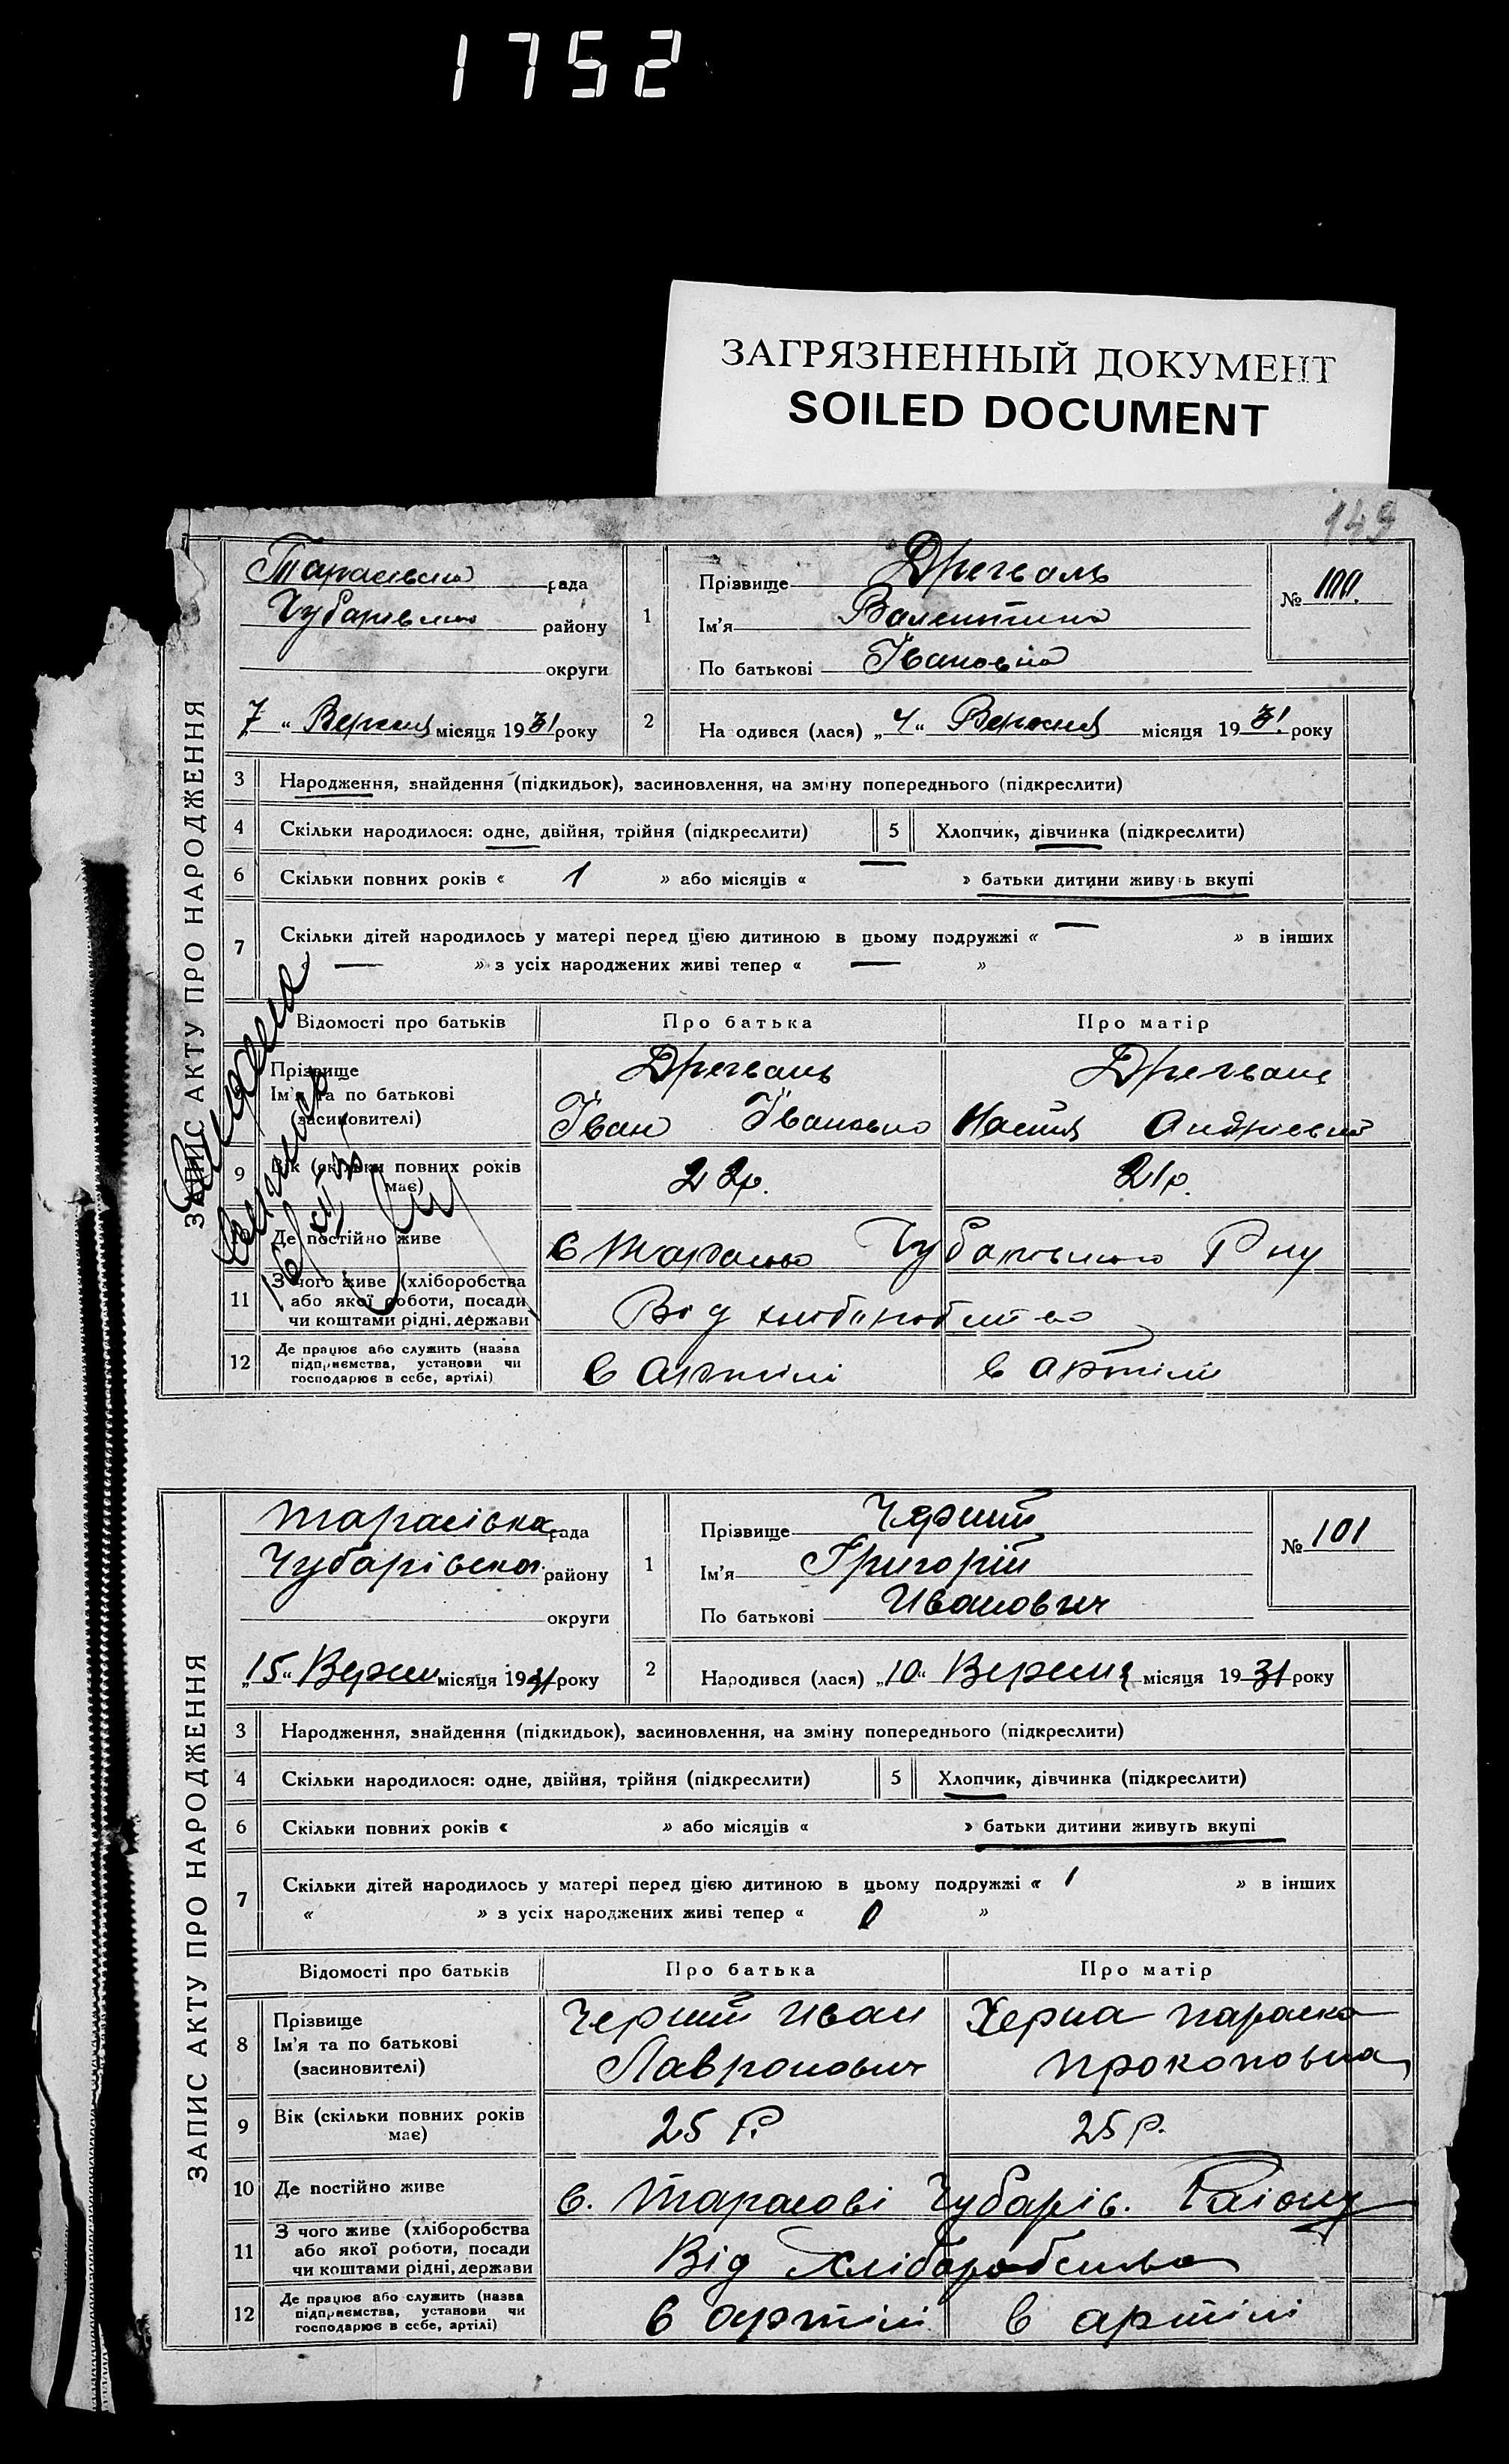 1752
ЗАГРЯЗНЕННЫЙ ДОКУМЕНТ
SOILED DOCUMENT
149
ЗАПИС АКТУ ПРО НАРОДЖЕННЯ
Тарасівська рада
Чубарівського району
округи
7 " Вересня місяця 1931 року
1
Прізвище Дрегваль
Ім'я Валентина
По батькові Івановна
№ 100.
2
На одився (лася) „ 4 " Вересня місяця 1931 року
3 Народження, знайдення (підкидьок), засиновлення, на зміну попереднього (підкреслити)
4 Скільки народилося: одне, двійня, трійня (підкреслити) 5 Хлопчик, дівчинка (підкреслити)
6 Скільки повних років « 1 » або місяців « — » батьки дитини живуть вкупі
7 Скільки дітей народилось у матері перед цією дитиною в цьому подружжі « — » в інших
— » з усіх народжених живі тепер « — »
Відомості про батьків Про батька Про матір
Прізвище Дрегваль Дрегваль
Ім'я та по батькові
(засиновителі) Іван Іванович Настя Андріевна
9 Вік (скільки повних років має) 22р. 21р.
Де постійно живе с Тарасівка Чубарівського Р ну
11 З чого живе (хліборобства
або якої роботи, посади
чи коштами рідні, держави Від хліборобства
12 Де працює або служить (назва
підприємства, установи чи
господарює в себе, артілі) в артілі в артілі
ЗАПИС АКТУ ПРО НАРОДЖЕННЯ
Тарасівка рада
Чубарівског. району
округи
„15" Верес місяця 1931 року
1
Прізвище Черний
Ім'я Григорій
По батькові Иванович
№ 101
2
Народився (лася) „10" Вересня місяця 1931 року
3 Народження, знайдення (підкидьок), засиновлення, на зміну попереднього (підкреслити)
4 Скільки народилося: одне, двійня, трійня (підкреслити) 5 Хлопчик, дівчинка (підкреслити)
6 Скільки повних років « » або місяців « » батьки дитини живуть вкупі
7 Скільки дітей народилось у матері перед цією дитиною в цьому подружжі « 1 » в інших
« » з усіх народжених живі тепер « 0 »
Відомості про батьків Про батька Про матір
8 Прізвище
Ім'я та по батькові
(засиновителі)
Черний Иван
Лавронович
Черна Параска
Прокоповна
9 Вік (скільки повних років має) 25 р. 25 р.
10 Де постійно живе с. Тарасові Чубарів. Раіону
11 З чого живе (хліборобства
або якої роботи, посади
чи коштами рідні, держави Від хліборобства
12 Де працює або служить (назва
підприємства, установи чи
господарює в себе, артілі) в артілі в артілі